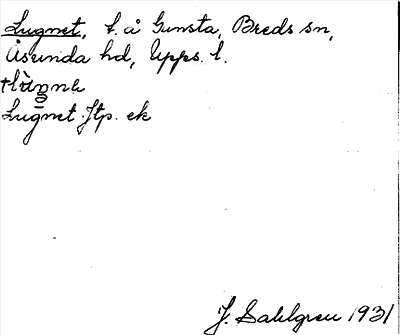 Lugnet, t. å Gunsta, Breds sn,
Åsunda hd, Upps. l.
Lugnet Jtp. ek
J. Sahlgren 1931